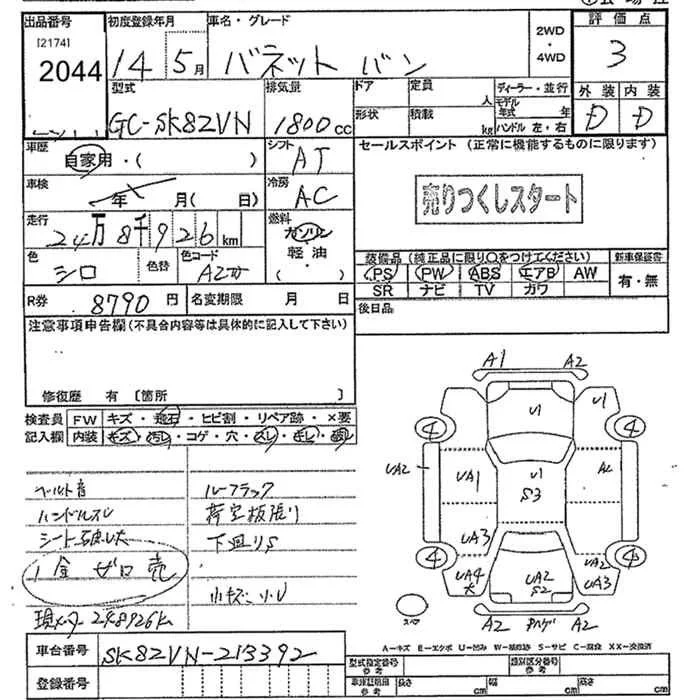 出品番号
[2174]
2044
初度登録年月
14 5月
車名・グレード
バネット バン
2WD
・
4WD
評価点
3
外装 内装
D D
型式
GC-SK82VN
排気量
1800cc
ドア
形状
定員
人
積載
kg
ディーラー・並行
モデル年式 年
ハンドル 左・右
車歴
自家用・( )
シフト
AT
セールスポイント (正常に機能するものに限ります)
売りつくしスタート
車検
年 月( 日)
冷房
AC
走行
24万8千926km
燃料
ガソリン
軽油
・
( )
色
シロ
色替
色コード
装備品 (純正品に限り○をつけてください)
新車保証書
PS PW ABS エアB AW
SR ナビ TV カワ
有・無
R券 8790円
名変期限 月 日
後日品
注意事項申告欄(不具合内容等は具体的に記入して下さい)
修復歴 有 〔箇所 〕
検査員
記入欄
FW キズ・飛石・ヒビ割・リペア跡・×要
内装 キズ・汚レ・コゲ・穴・スレ・キレ・
ベルト音
ハンドルスレ
ルーフラック
荷室板張り
下廻りS
1金 ゼロ 売
小キズ・凹
現メータ 248926k
A1 A2
U1 U1
4 4
UA2 UA1 U1 S3 A2
UA3
4 4
UA4 UA2 S2 UA2 UA3
スペア
A2 A2
A=キズ E=エクボ U=凹み W=補修跡 S=サビ C=腐食 XX=交換済
車台番号 SK82VN-213392
登録番号
型式指定番号
参考
類別区分番号
参考
車庫証明用
参考
長さ cm 幅 cm 高さ cm